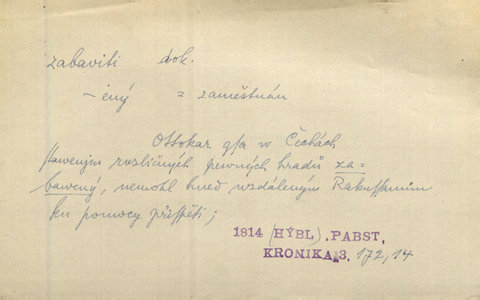 zabaviti dok.
-ený = zaměstnán
Ottokar gsa w Čechách
stawenjm rozličných pewných hradů za=
bawený, nemohl hned wzdáleným Rakussanům
ku pomocy přispěti;
1814 (HÝBL), PABST,
KRONIKA, 3. 172,14